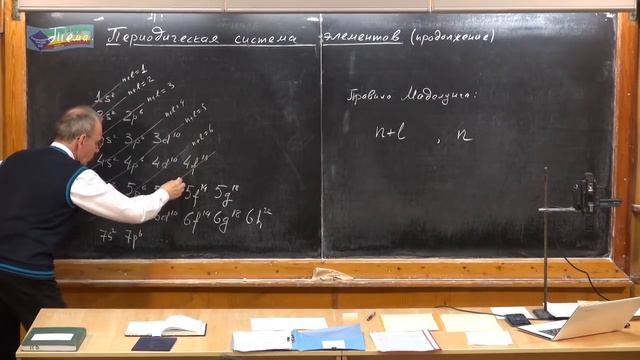 Тема: Периодическая система элементов (продолжение)
n+l=1
n+l=2
1s² n+l=3
2s² 2p⁶ n+l=4
n+l=5
3p⁶ 3d¹⁰ n+l=6
4s² 4p⁶ 4d¹⁰ 4f¹⁴
5p⁶ 5f¹⁴ 5g¹⁸
6f¹⁴ 6g¹⁸ 6h²²
7s² 7p⁶ ...
Правило Маделунга:
n+l , n